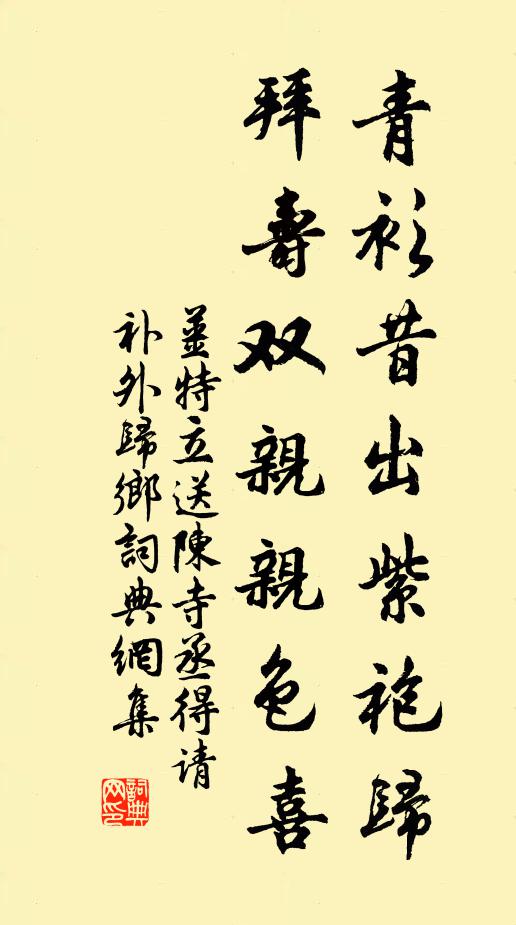 青衫昔出紫袍歸
拜壽双親親色喜
薑特立送陳寺丞得请
补外歸鄉詞典網集
詞典
网印